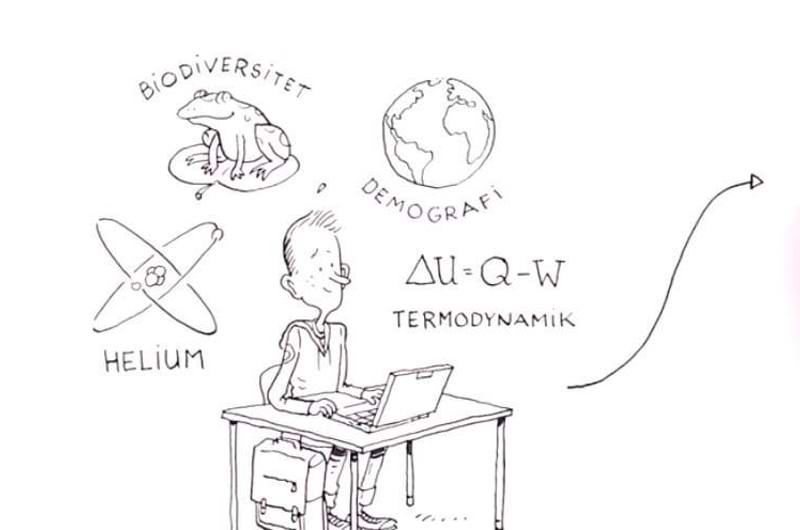 BIODIVERSITET
DEMOGRAFI
HELIUM
ΔU=Q-W
TERMODYNAMIK